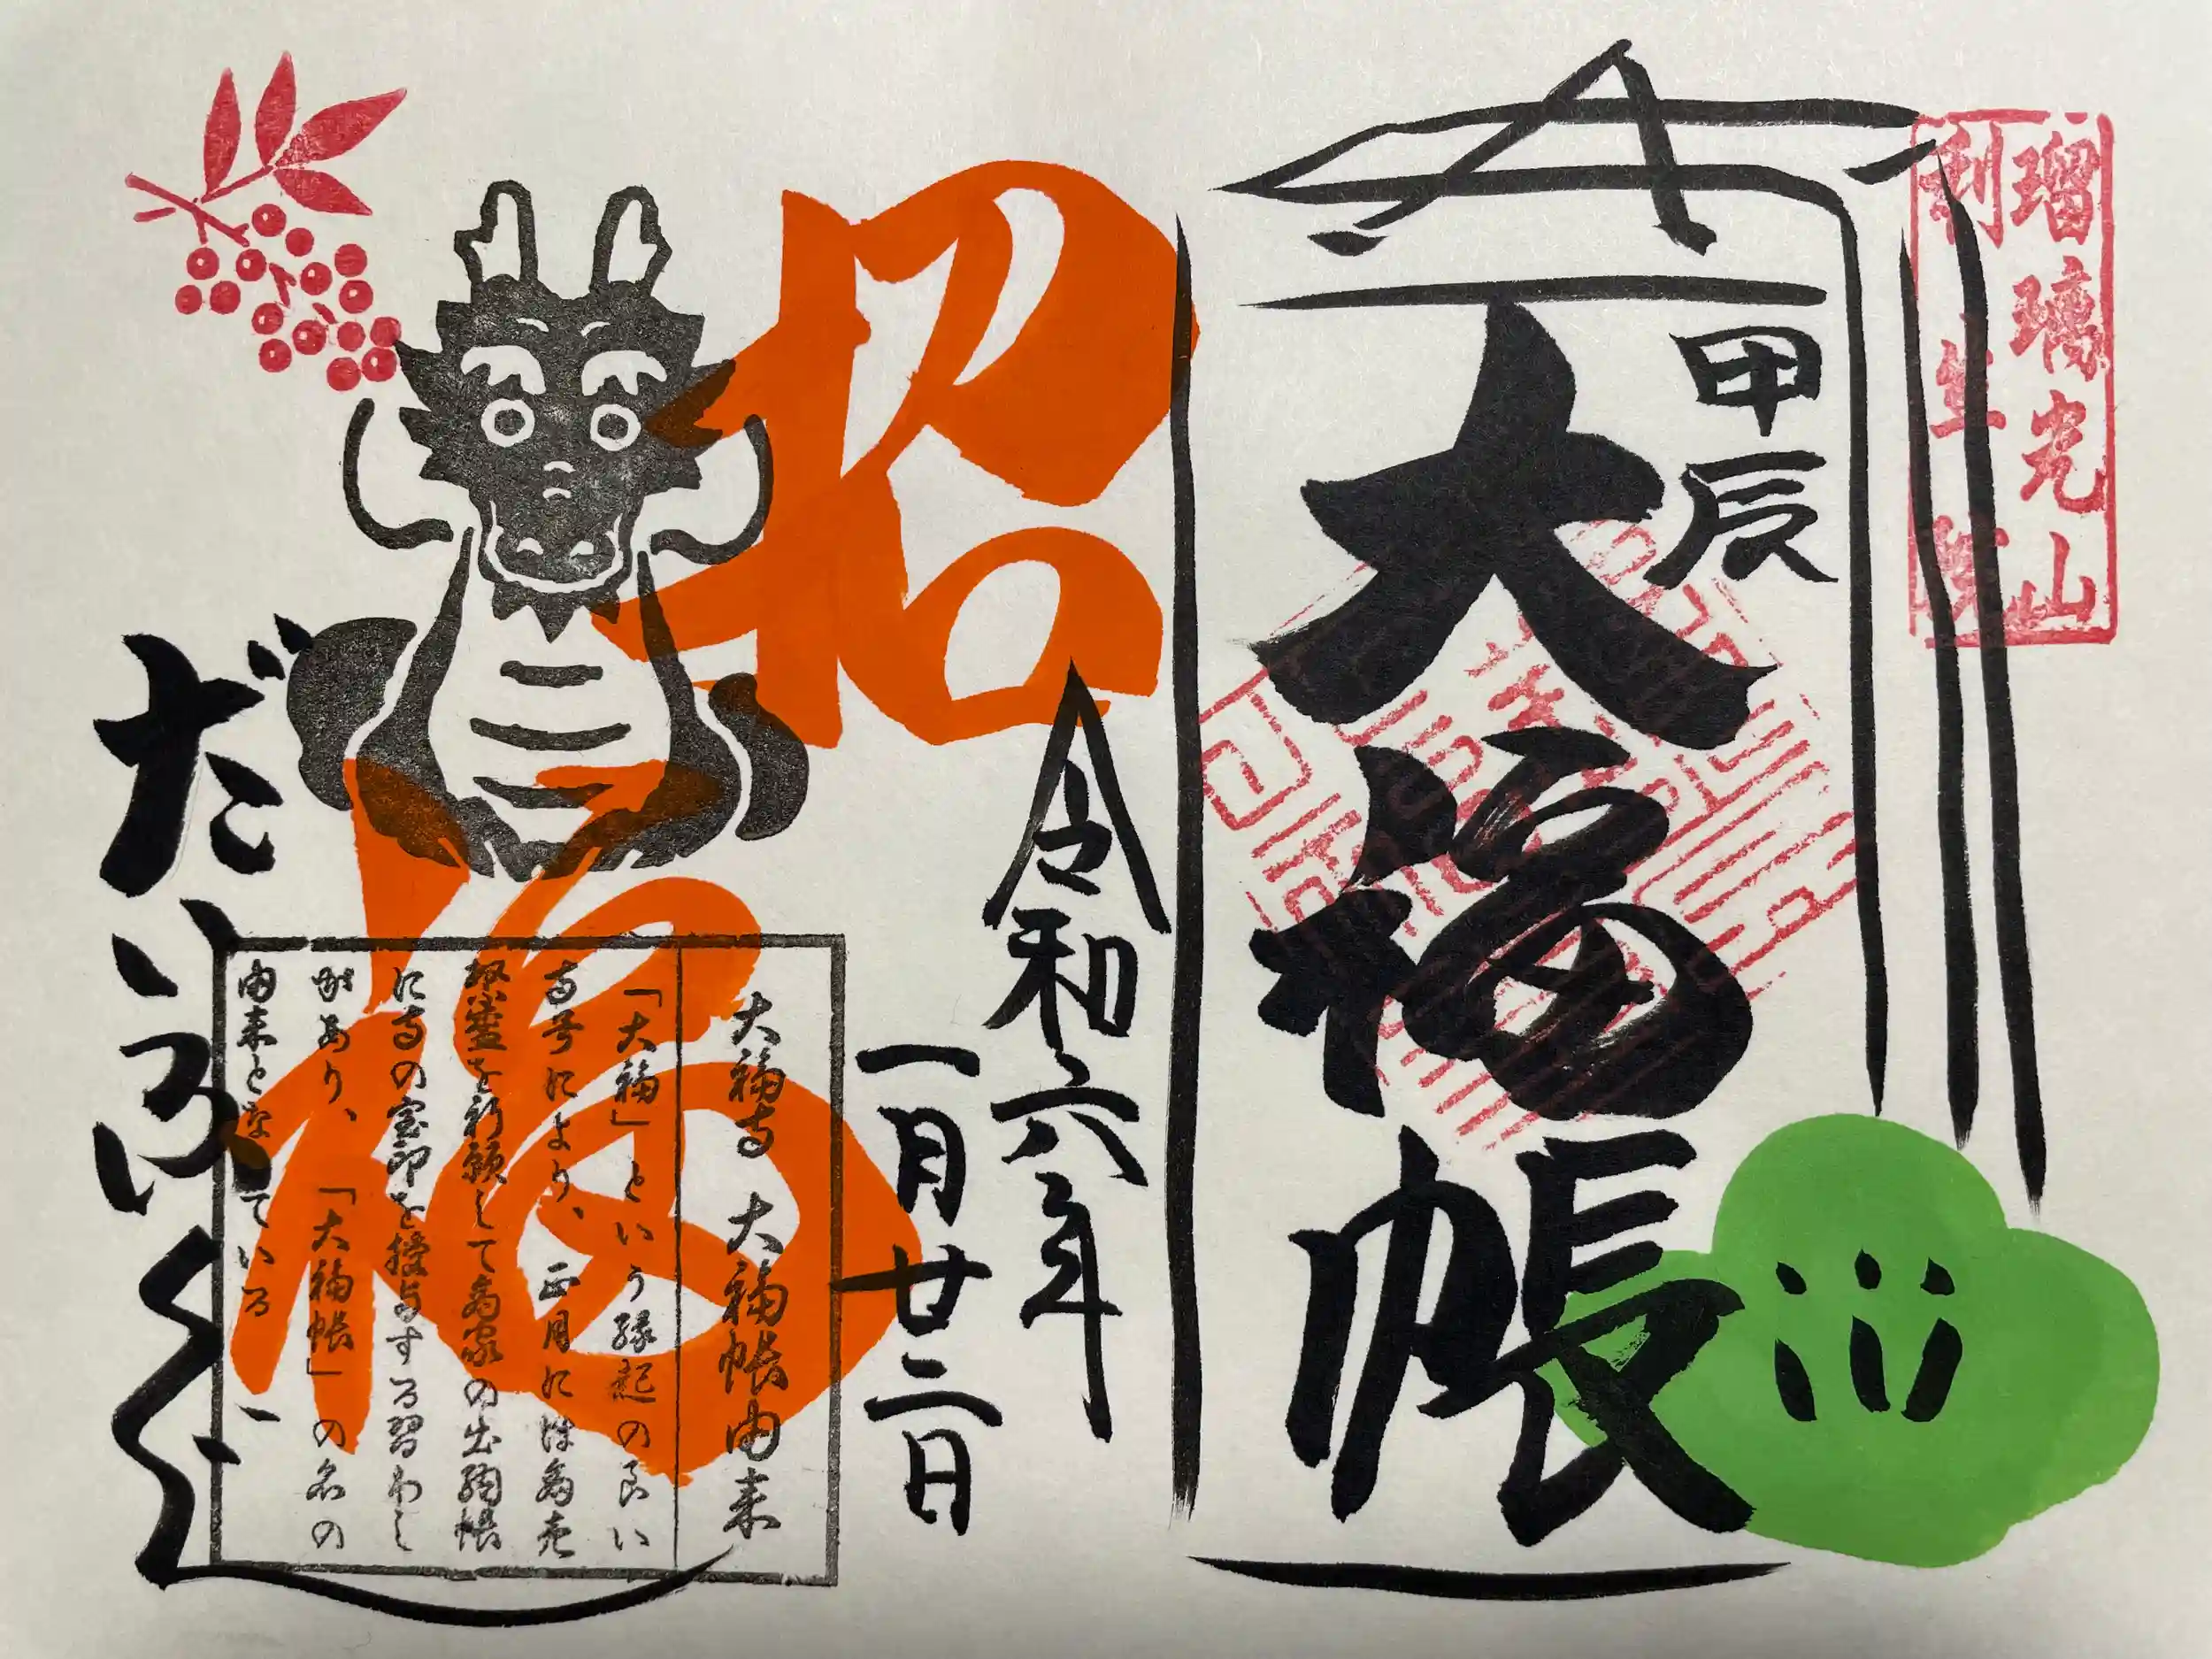 瑠璃光山
利生院
甲辰
大福帳
招福
令和六年
一月廿二日
大福寺 大福帳由来
「大福」という縁起の良い
寺号により、正月には商売
繁盛を祈願して商家の出納帳
に寺の宝印を授与する習わし
があり、「大福帳」の名の
由来となっている
だいふくじ